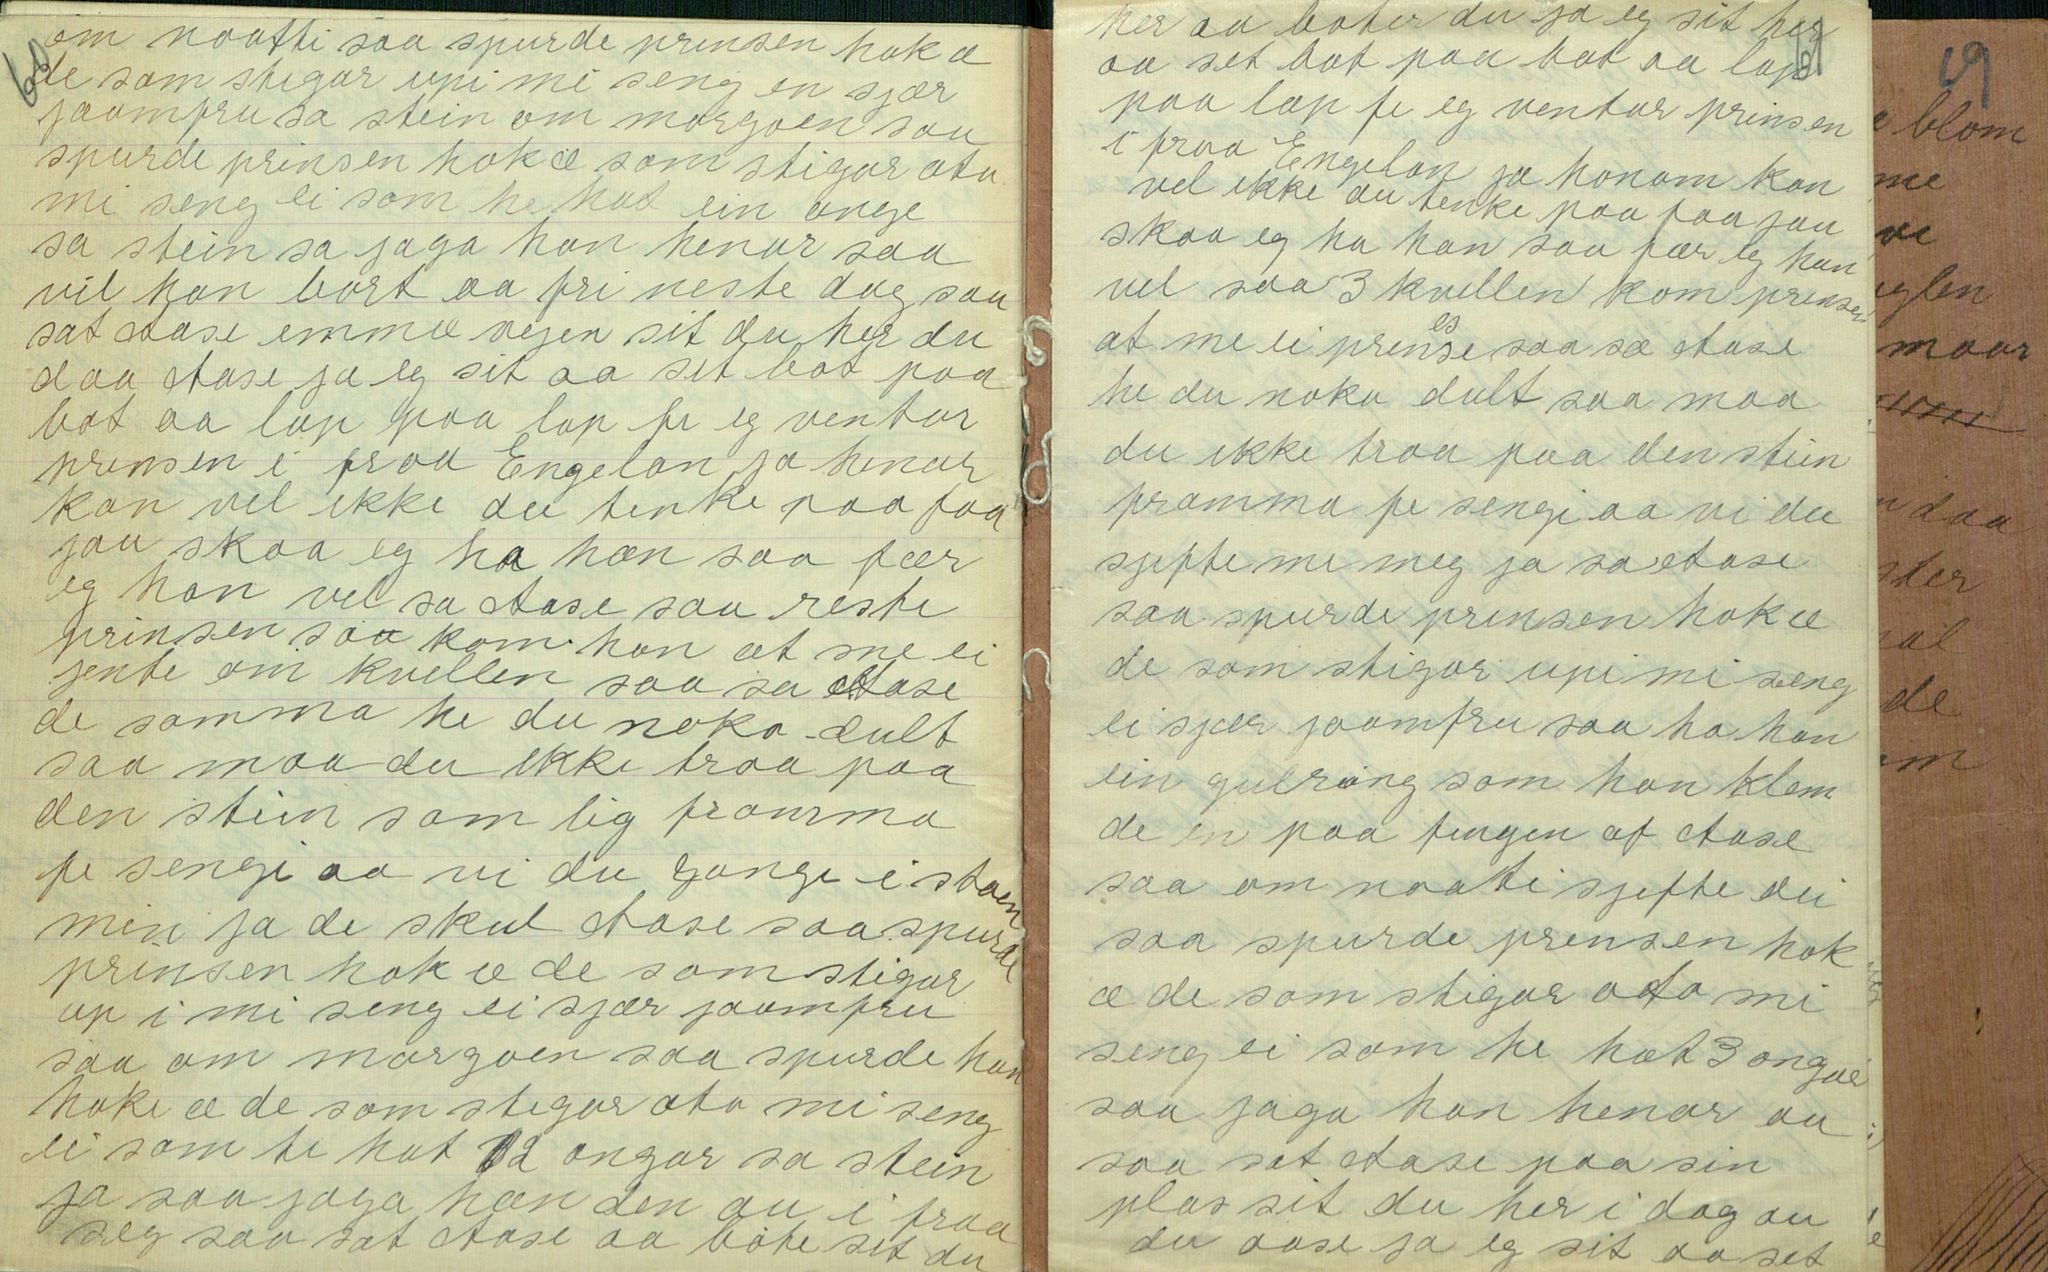 60
om naatti saa spurde prinsen hok æ
de som stigar upi mi seng en sjær
jaamfru sa stein om morgoen saa
spurde prinsen hok æ som stigar ota
mi seng ei som he hat ein onge
sa stein sa jaga han henar saa
vil han bort aa fri neste dag saa
sat Aase emmæ vejen sit du her du
daa Aase ja eg sit aa set bot paa
bot aa lap paa lap fe eg ventar
prinsen i fraa Engelan ja henar
kan vel ikke du tenke paa faa
jau skaa eg ha han saa fær
eg han vel sa Aase saa reste
prinsen saa kom han at me ei
jente om kvellen saa sa Aase
de samma he du noko dult
saa maa du ikke traa paa
den stein som lig framma
fe sengi aa vi du gange i staen
min ja de skul Aase saa spurde
prinsen hok æ de som stigar
op i mi seng ei sjær jaamfru
saa om morgoen saa spurde han
hoke æ de som stegar ota mi seng
ei som he hat 2 ongar sa stein
ja saa jaga han den au i fraa
seg saa sat Aase aa bøte sit du
61
her aa bøter du ja eg sit her
aa set bot paa bot aa lap
paa lap fe eg ventar prinsen
i fraa Engelan ja honom kan
vel ikke du tenke paa faa jau
skaa eg ha han saa fær eg han
vel saa 3 kvellen kom prinsen
at me ei prinsesse saa sa Aase
he du noko dult saa maa
du ikke traa paa den stein
framma fe sengi aa vi du
sjefte me meg ja sa Aase
saa spurde prinsen hok æ
de som stigar upi mi seng
ei sjær jaamfru saa ha han
ein gulring som han klem
de en paa fingen at Aase
saa om naatti sjefte dei
saa spurde prinsen hok
æ de som stigar ota mi
seng ei som he hat 3 ongar
saa jaga han henar au
saa sat Aase paa sin
plas sit du her i dag au
du aase ja eg sit aa set
19
blom
me
ve
maar
daa
ster
de